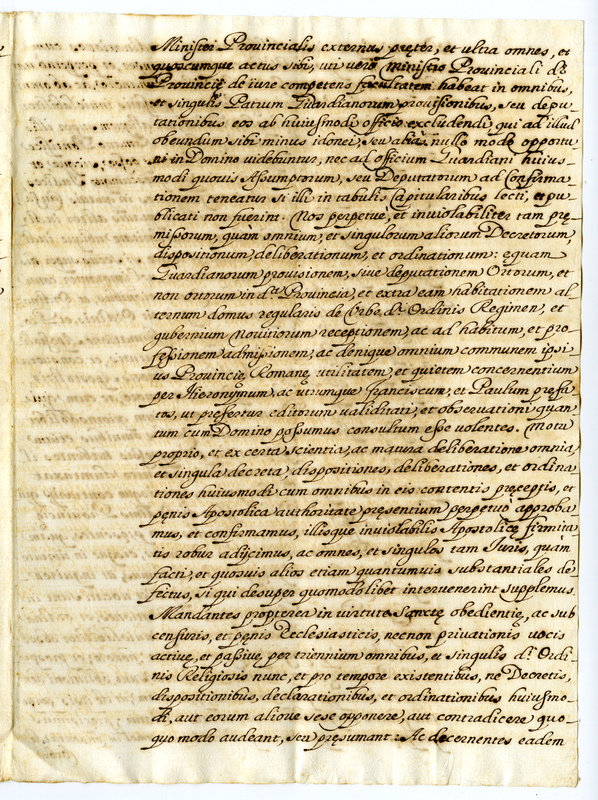 Ministri Provincialis externus pręter, et ultra omnes, et
quoscumque actus sibi, uti vero Ministro Provinciali d.ę
Provincię de iure competens facultatem habeat in omnibus,
et singulis Patrum Guardianorum provisionibus, seu depu-
tationibus eos ab huiusmodi officio excludendi, qui ad illud
obeundum sibi minus idonei, seu alias nullo modo opportu
ni in Domino videbuntur, nec ad officium Guardiani huius-
modi quovis Assumptorum, seu Deputatorum ad Confirma-
tionem teneatur si illi in tabulis Capitularibus lecti, et pu
blicati non fuerint. Nos perpetuę, et inviolabiliter tam prę
missorum, quàm omnium, et singulorum aliorum Decretorum,
dispositionum, deliberationum, et ordinationum: ęquam
Guardianorum provisionem, sive deputationem Ortorum, et
non ortorum in d.ta Provincia, et extra eam habitationem al-
ternum domus regularis de Orbe d.i Ordinis Regimen, et
gubernium Novitiorum receptionem, ac ad habitum, et pro-
fessionem admissionem, ac denique omnium communem ipsi-
us Provincię Romanę utilitatem, et quietem concernentium
per Hieronymum, ac utrumque Franciscum, et Paulum pręfa
tos, ut pręfertur editorum validitati, et observationi quan
tum cum Domino possumus consultum esse volentes. Motu
proprio, et ex certa scientia, ac matura deliberatione omnia,
et singula decreta, dispositiones, deliberationes, et ordina
tiones huiusmodi cum omnibus in eis contentis pręceptis, et
pęnis Apostolica authoritate pręsentium perpetuò approba
mus, et confirmamus, illisque inviolabilis Apostolicę firmita-
tis robur adijcimus, ac omnes, et singulos tam Iuris, quàm
facti, et quosvis alios etiam quantumvis substantiales de
fectus, si qui desuper quomodolibet intervenerint supplemus.
Mandantes propterea in virtute Sanctę obedientię, ac sub
censuris, et pęnis Ecclesiasticis, necnon privationis vocis
activę, et passivę, per triennium omnibus, et singulis d.i Ordi-
nis Religiosis nunc, et pro tempore existentibus, ne Decretis,
dispositionibus, declarationibus, et ordinationibus huiusmo-
di, aut eorum alicui sese opponere, aut contradicere quo-
quo modo audeant, seu pręsumant: Ac decernentes eadem